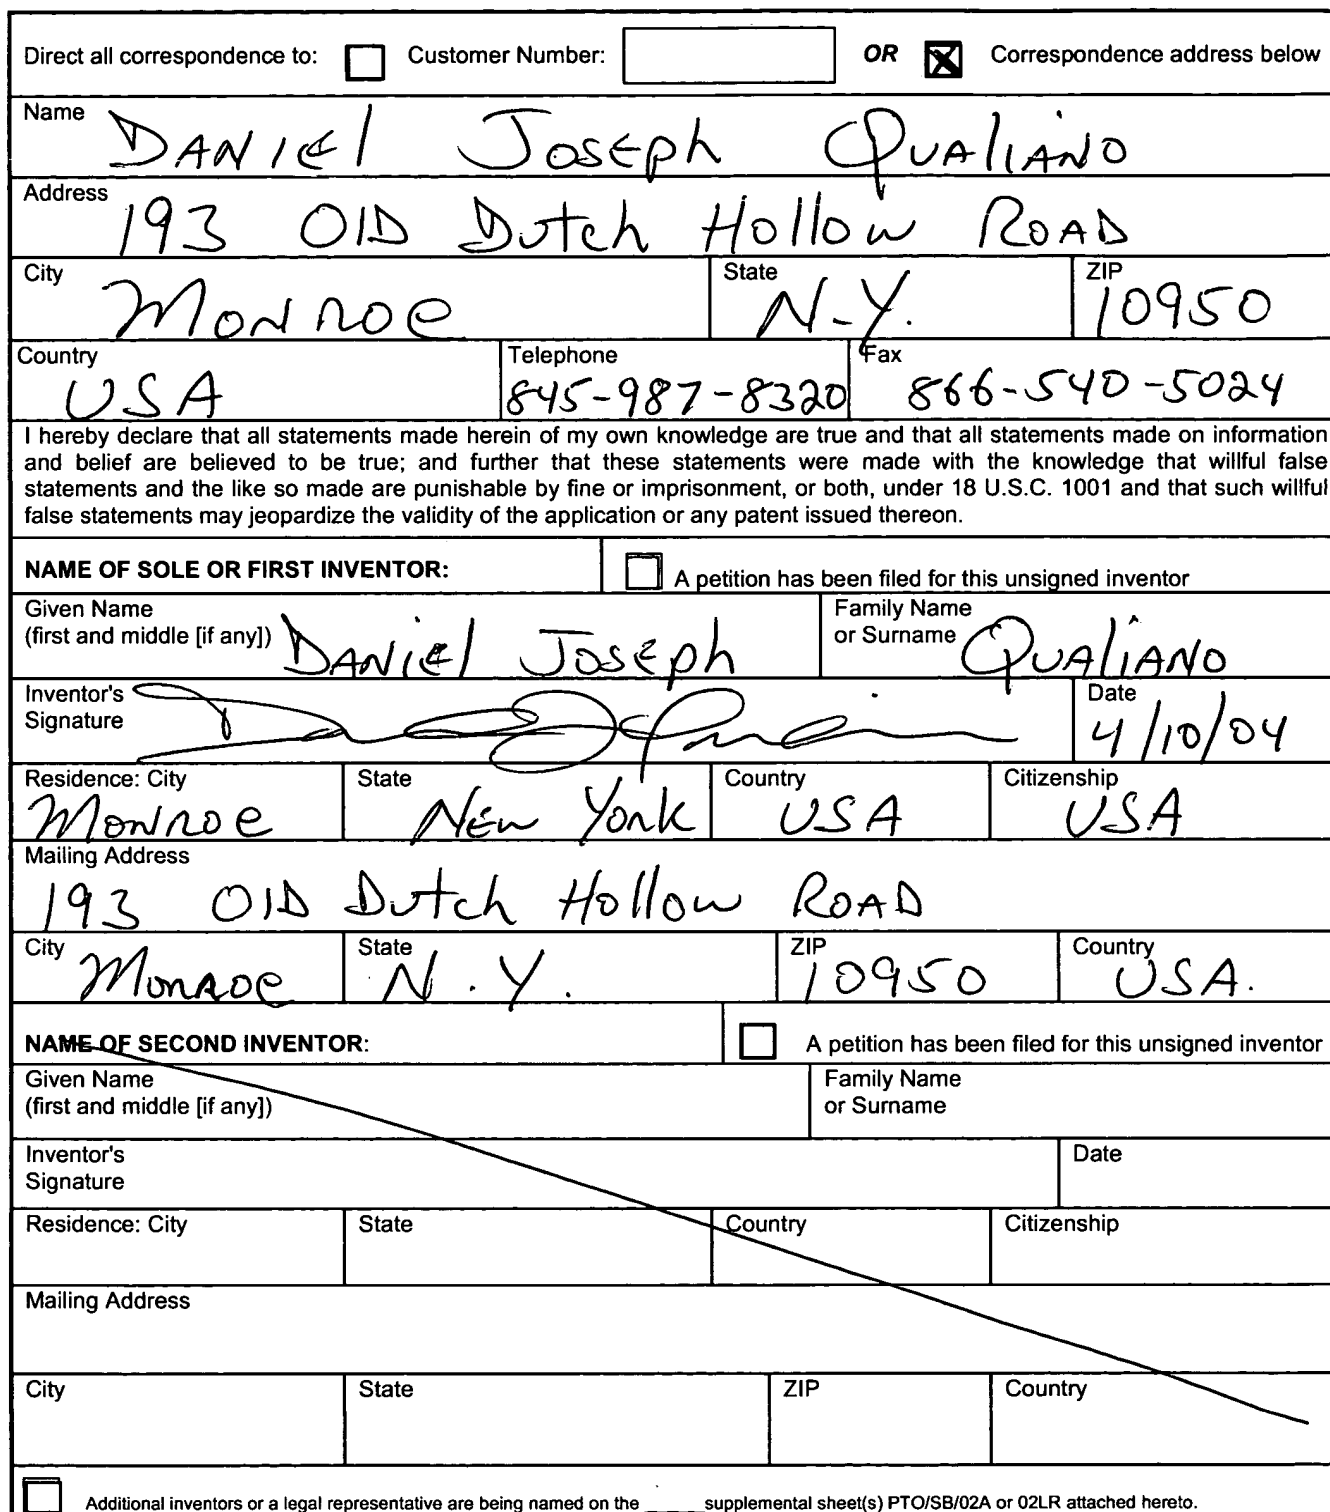 Direct all correspondence to: Customer Number: OR Correspondence address below
Name DANIEl JosEph QUAlIANO
Address 193 OlD Dutch Hollow ROAD
City Monroe State N.Y. ZIP 10950
Country USA Telephone 845-987-8320 Fax 866-540-5024
I hereby declare that all statements made herein of my own knowledge are true and that all statements made on information
and belief are believed to be true; and further that these statements were made with the knowledge that willful false
statements and the like so made are punishable by fine or imprisonment, or both, under 18 U.S.C. 1001 and that such willful
false statements may jeopardize the validity of the application or any patent issued thereon.
NAME OF SOLE OR FIRST INVENTOR: A petition has been filed for this unsigned inventor
Given Name Family Name
(first and middle [if any]) DANIEl JosEph or Surname QUAlIANO
Inventor's Date
Signature 4/10/04
Residence: City State Country Citizenship
Monroe NEw York USA USA
Mailing Address
193 OlD Dutch Hollow ROAD
City Monroe State N.Y. ZIP 10950 Country USA.
NAME OF SECOND INVENTOR: A petition has been filed for this unsigned inventor
Given Name Family Name
(first and middle [if any]) or Surname
Inventor's Date
Signature
Residence: City State Country Citizenship
Mailing Address
City State ZIP Country
Additional inventors or a legal representative are being named on the ____ supplemental sheet(s) PTO/SB/02A or 02LR attached hereto.